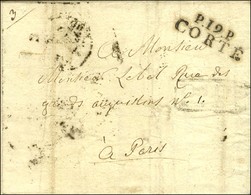 3
P.19.P.
CORTE
A Monsieur
Monsieur Lebel Rue des
grands augustins n° 1.
à Paris